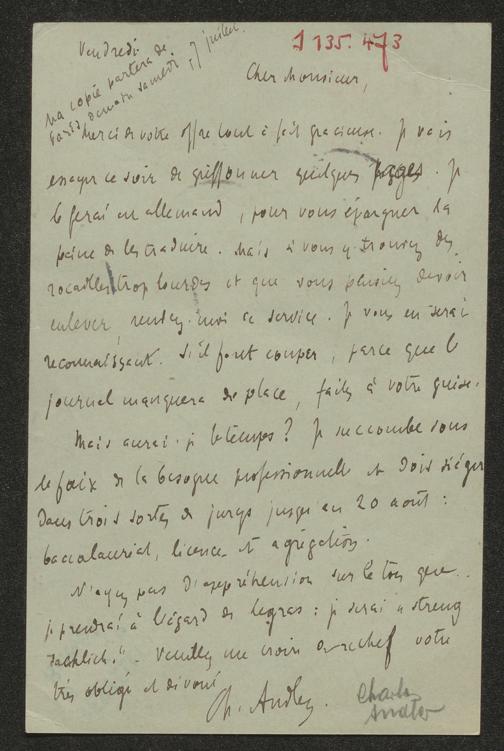 Vendredi
Ma copie partera de
Paris demain samedi 17 juillet.
I 135.473
Cher Monsieur,
Merci de votre offre tout à fait gracieuse. Je vais
essayer ce soir de griffonner quelques pages. Je
le ferai en allemand, pour vous épargner la
peine de les traduire. Mais si vous y trouvez des
rocailles trop lourdes et que vous pensiez devoir
enlever, rendez-moi ce service. Je vous en serai
reconnaissant. S'il faut couper, parce que le
journal manquera de place, faites à votre guise.
Mais aurai-je le temps? Je succombe sous
le faix de la besogne professionnelle et dois siéger
dans trois sortes de jurys jusqu'au 20 août :
baccalauréat, licence et agrégation.
N'ayez pas d'appréhension sur le ton que
je prendrai à l'égard de Legras : je serai "streng
sachlich". - Veuillez me croire derechef votre
très obligé et dévoué
Ch. Andler.
Charles
Andler